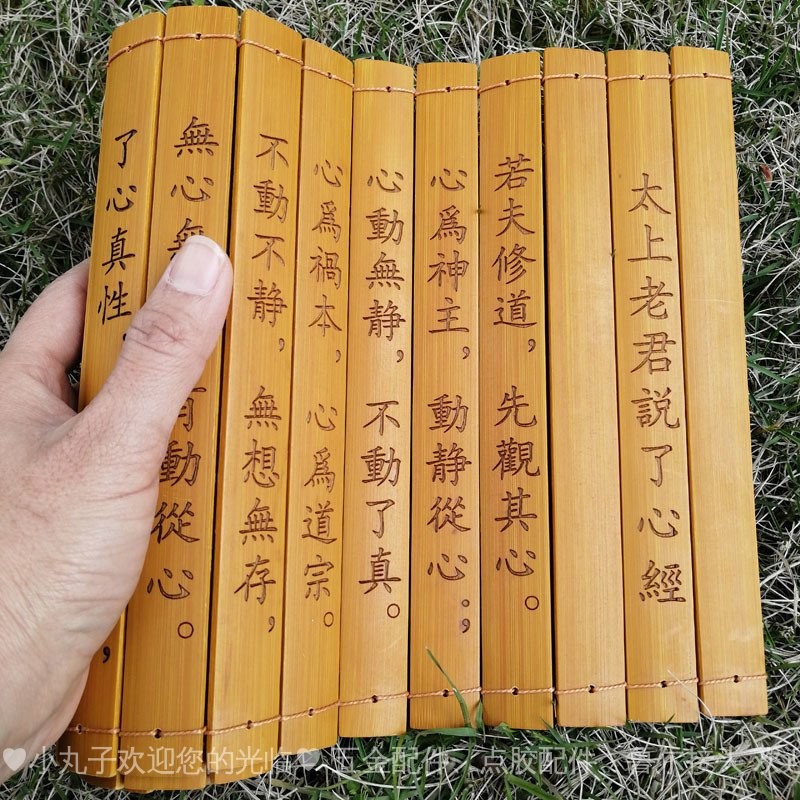 太上老君説了心經
若夫修道，先觀其心。
心爲神主，動静從心；
心動無静，不動了真。
心爲禍本，心爲道宗。
不動不静，無想無存，
無心無動從心。
了心真性，
♥小丸子欢迎您的光临♥ 五金配件 点胶配件